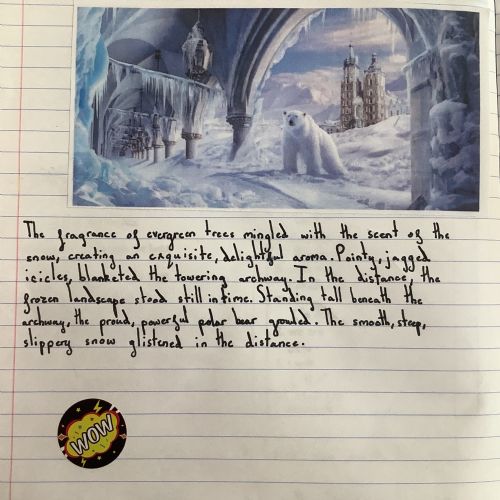 The fragrance of evergreen trees mingled with the scent of the
snow, creating an exquisite, delightful aroma. Pointy, jagged
icicles, blanketed the towering archway. In the distance, the
frozen landscape stood still in time. Standing tall beneath the
archway, the proud, powerful polar bear growled. The smooth, steep,
slippery snow glistened in the distance.
WOW